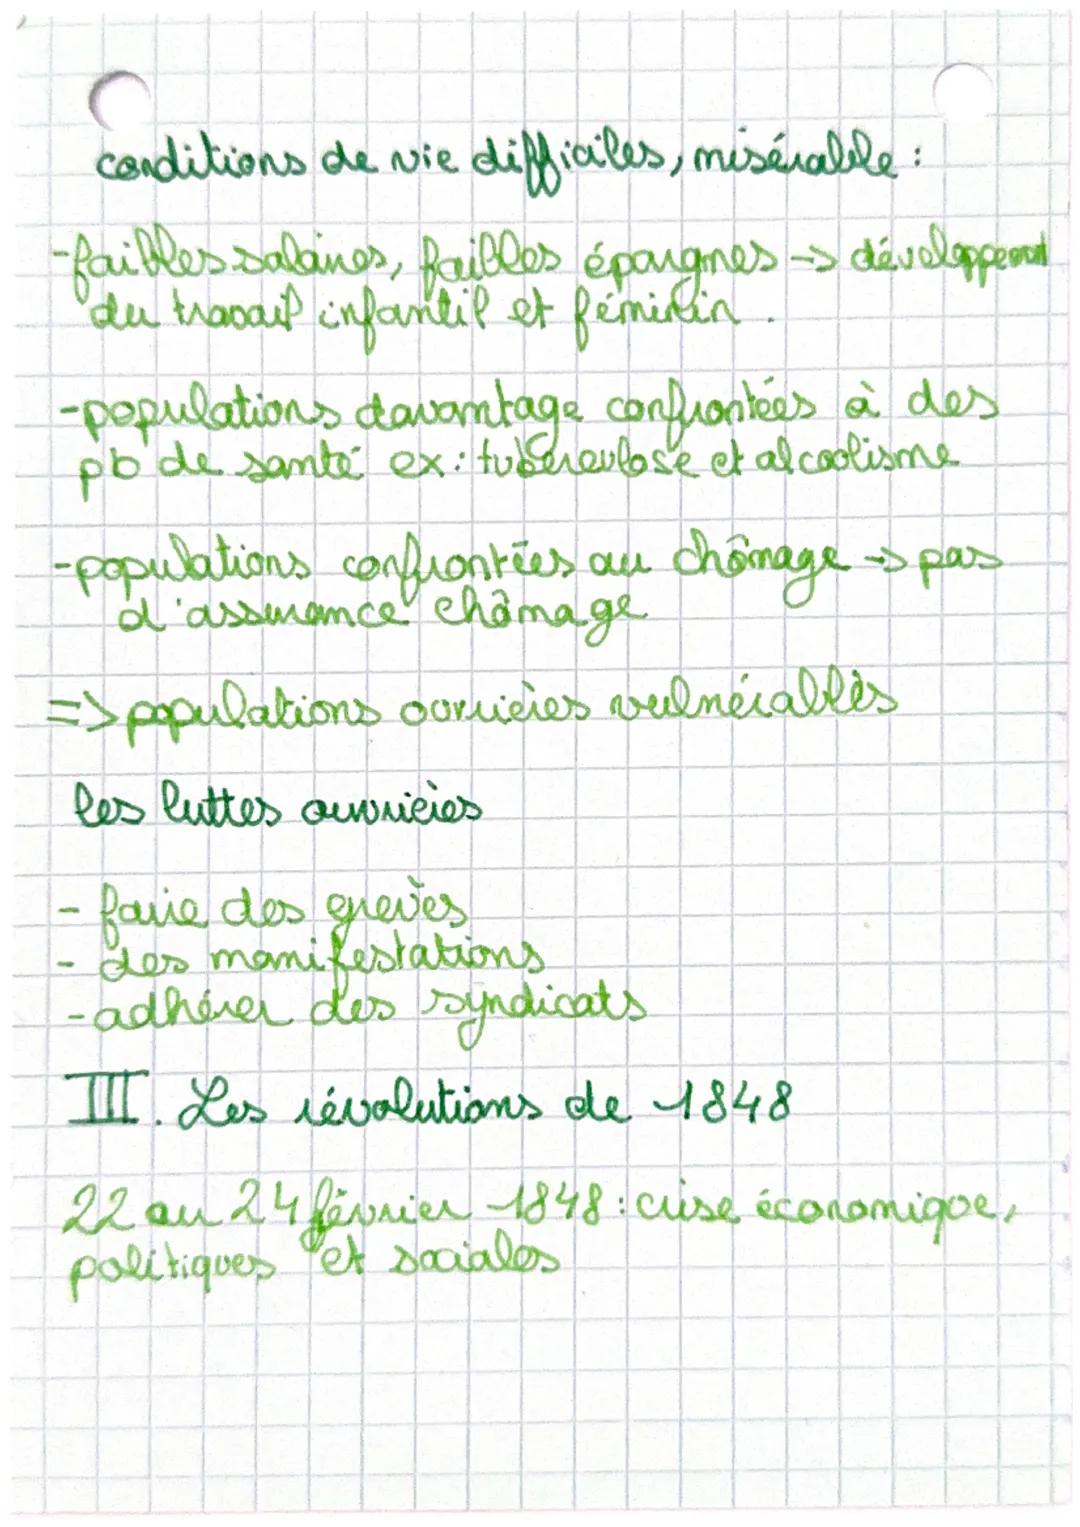 conditions de vie difficiles, misérable :
-faibles salaires, faibles épargnes -> développement
du travail infantil et féminin .
-populations davantage confrontées à des
pb de santé ex: tuberculose et alcoolisme
-populations confrontées au chômage -> pas
d'assurance chômage
=> populations ouvrières vulnérables
les luttes ouvrières
- faire des grèves
- des manifestations
-adhérer des syndicats
III. Les révolutions de 1848
22 au 24 février 1848 : crise économique,
politiques et sociales